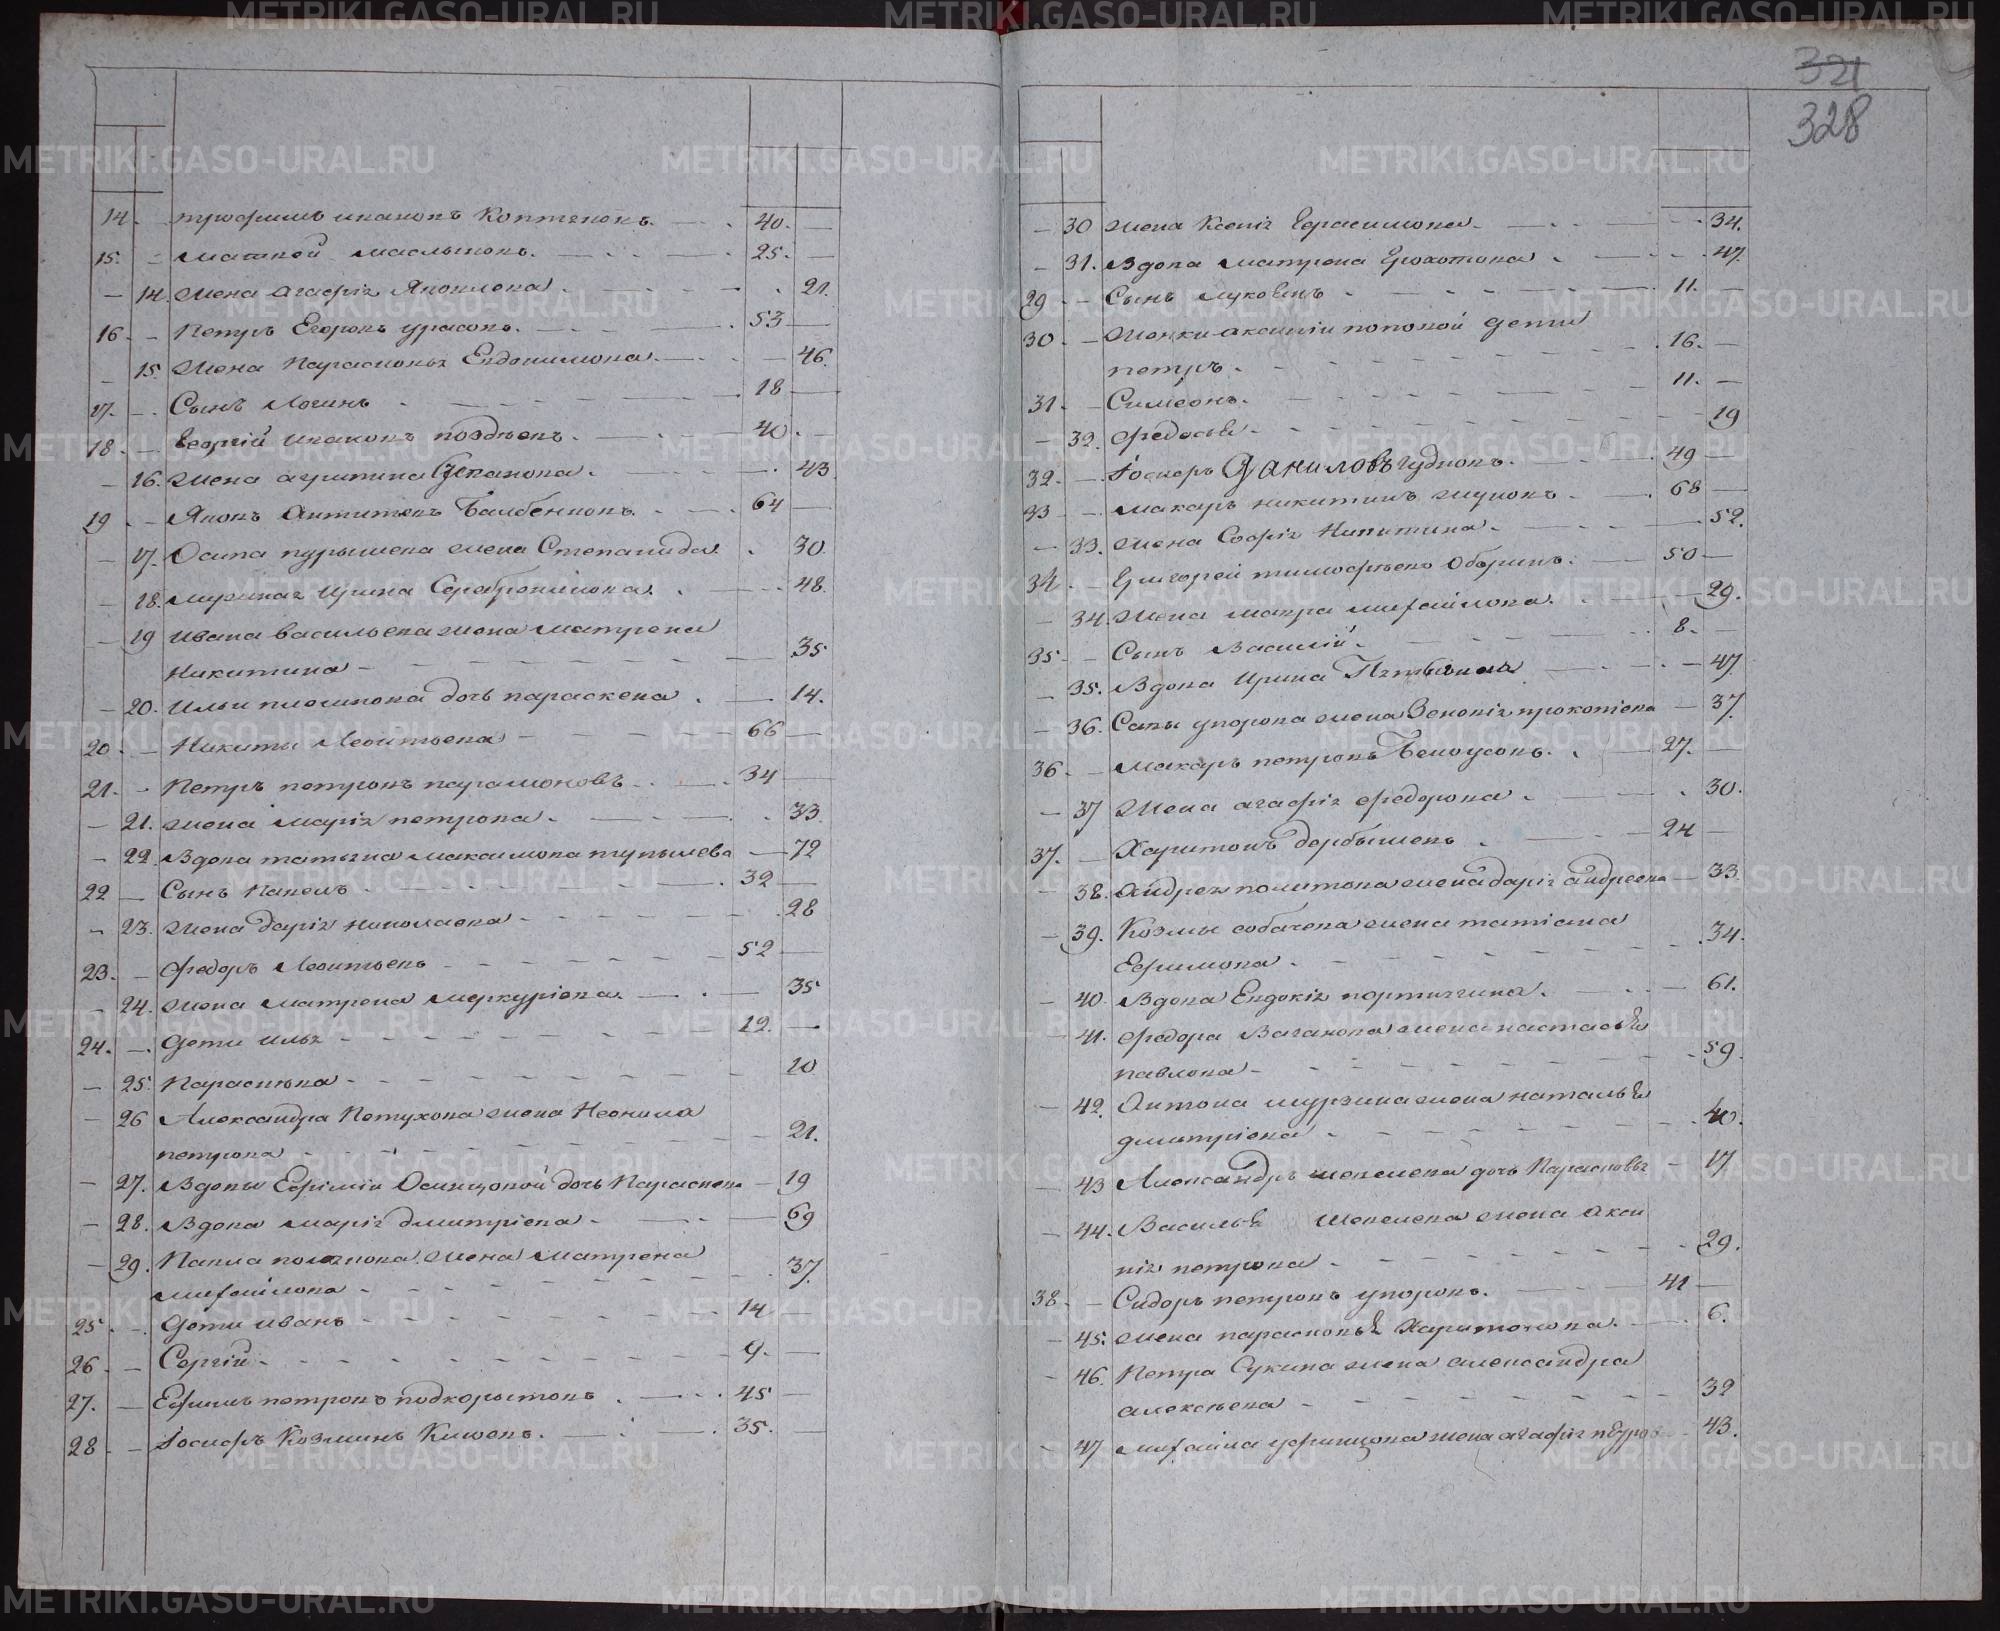 321
328
14. - трофимъ ивановъ Коптеловъ. 40.
15. - Матвей Масльтовъ. 25.
- 14. Жена агафія Яковлева. 21.
16. - Петръ Егоровъ урасовъ. 53
- 15. Жена Парасковья Евдокимова. 46.
17. - Сынъ Логинъ 18
18. - Георгій ивановъ поздеевъ. 40.
- 16. Жена агрипина Степанова. 43
19. - Яковъ Антипьевъ 64
- 17. Осипа пурышева жена Степанида. 30.
- 18. Ирина 48.
- 19 ивана васильева жена матрена
Никитина 35
- 20. Ильи дочь параскева. 14.
20. - Никиты Леонтьева 66
21. - Петръ петровъ парамоновъ. 34
- 21. жена марія петрова. 33
- 22. Вдова татьяна максимова тупылева 72
22 - Сынъ Павелъ. 32
- 23. Жена дарія николаева 28
23. - Федоръ Леонтьевъ 52
- 24. жена матрена меркуріева. 35
24. - дети илья 12.
- 25. Параскева 10
- 26 Александра Петухова жена Неонила
петрова 21.
- 27. Вдовы Ефиміи Осинцовой дочь Параскева 19
- 28. Вдова марія дмитріева 69
- 29. Павла полякова жена матрена
михайлова 37.
25. - дети иванъ 14
26 - Сергій 9.
27. - Ефимъ петровъ подкорытовъ. 45
28 - Іосифъ Козминъ Кивевъ. 35.
- 30 жена Ксенія Герасимова 34.
- 31. Вдова матрена Грохотова 47.
29 - Сынъ 11.
30. - Женки аксиніи поповой дети
петръ. 16.
31. - Симеонъ. 11.
- 32. федосья 19
32. - Іосифъ Даниловъ чудновъ. 49
33 - макаръ никитинъ жуковъ. 68
- 33. жена Софія Никитина 52.
34. - Григорей тимофеевъ Оборинъ. 50
- 34. жена мавра михайлова. 29.
35. - Сынъ Василій. 8.
- 35. Вдова Ирина 47.
- 36. Савы упорова жена Зеновія прокопіева 37.
36. - макаръ петровъ Белоусовъ. 27.
- 37 жена агафія федорова 30.
37. - Харитонъ дербышевъ 24
- 38. Андрея политова жена дарія андреева 33
- 39. Козмы собачева жена татіана
Ефимова 34.
- 40. Вдова Евдокія портнягина. 61.
- 41. федора Ваганова жена настасья
павлова 59.
- 42. Антона мурзина жена наталья
дмитріева 40.
- 43 Александръ шевелева дочь Парасковья 17
- 44. Василья шевелева жена акси
нія петрова 29.
38. - Сидоръ петровъ упоровъ. 41
- 45. жена парасковья Харитонова. 6.
- 46. Петра Сукина жена александра
алексеева 32
- 47 михаила уфинцова жена агафія петрова 43.